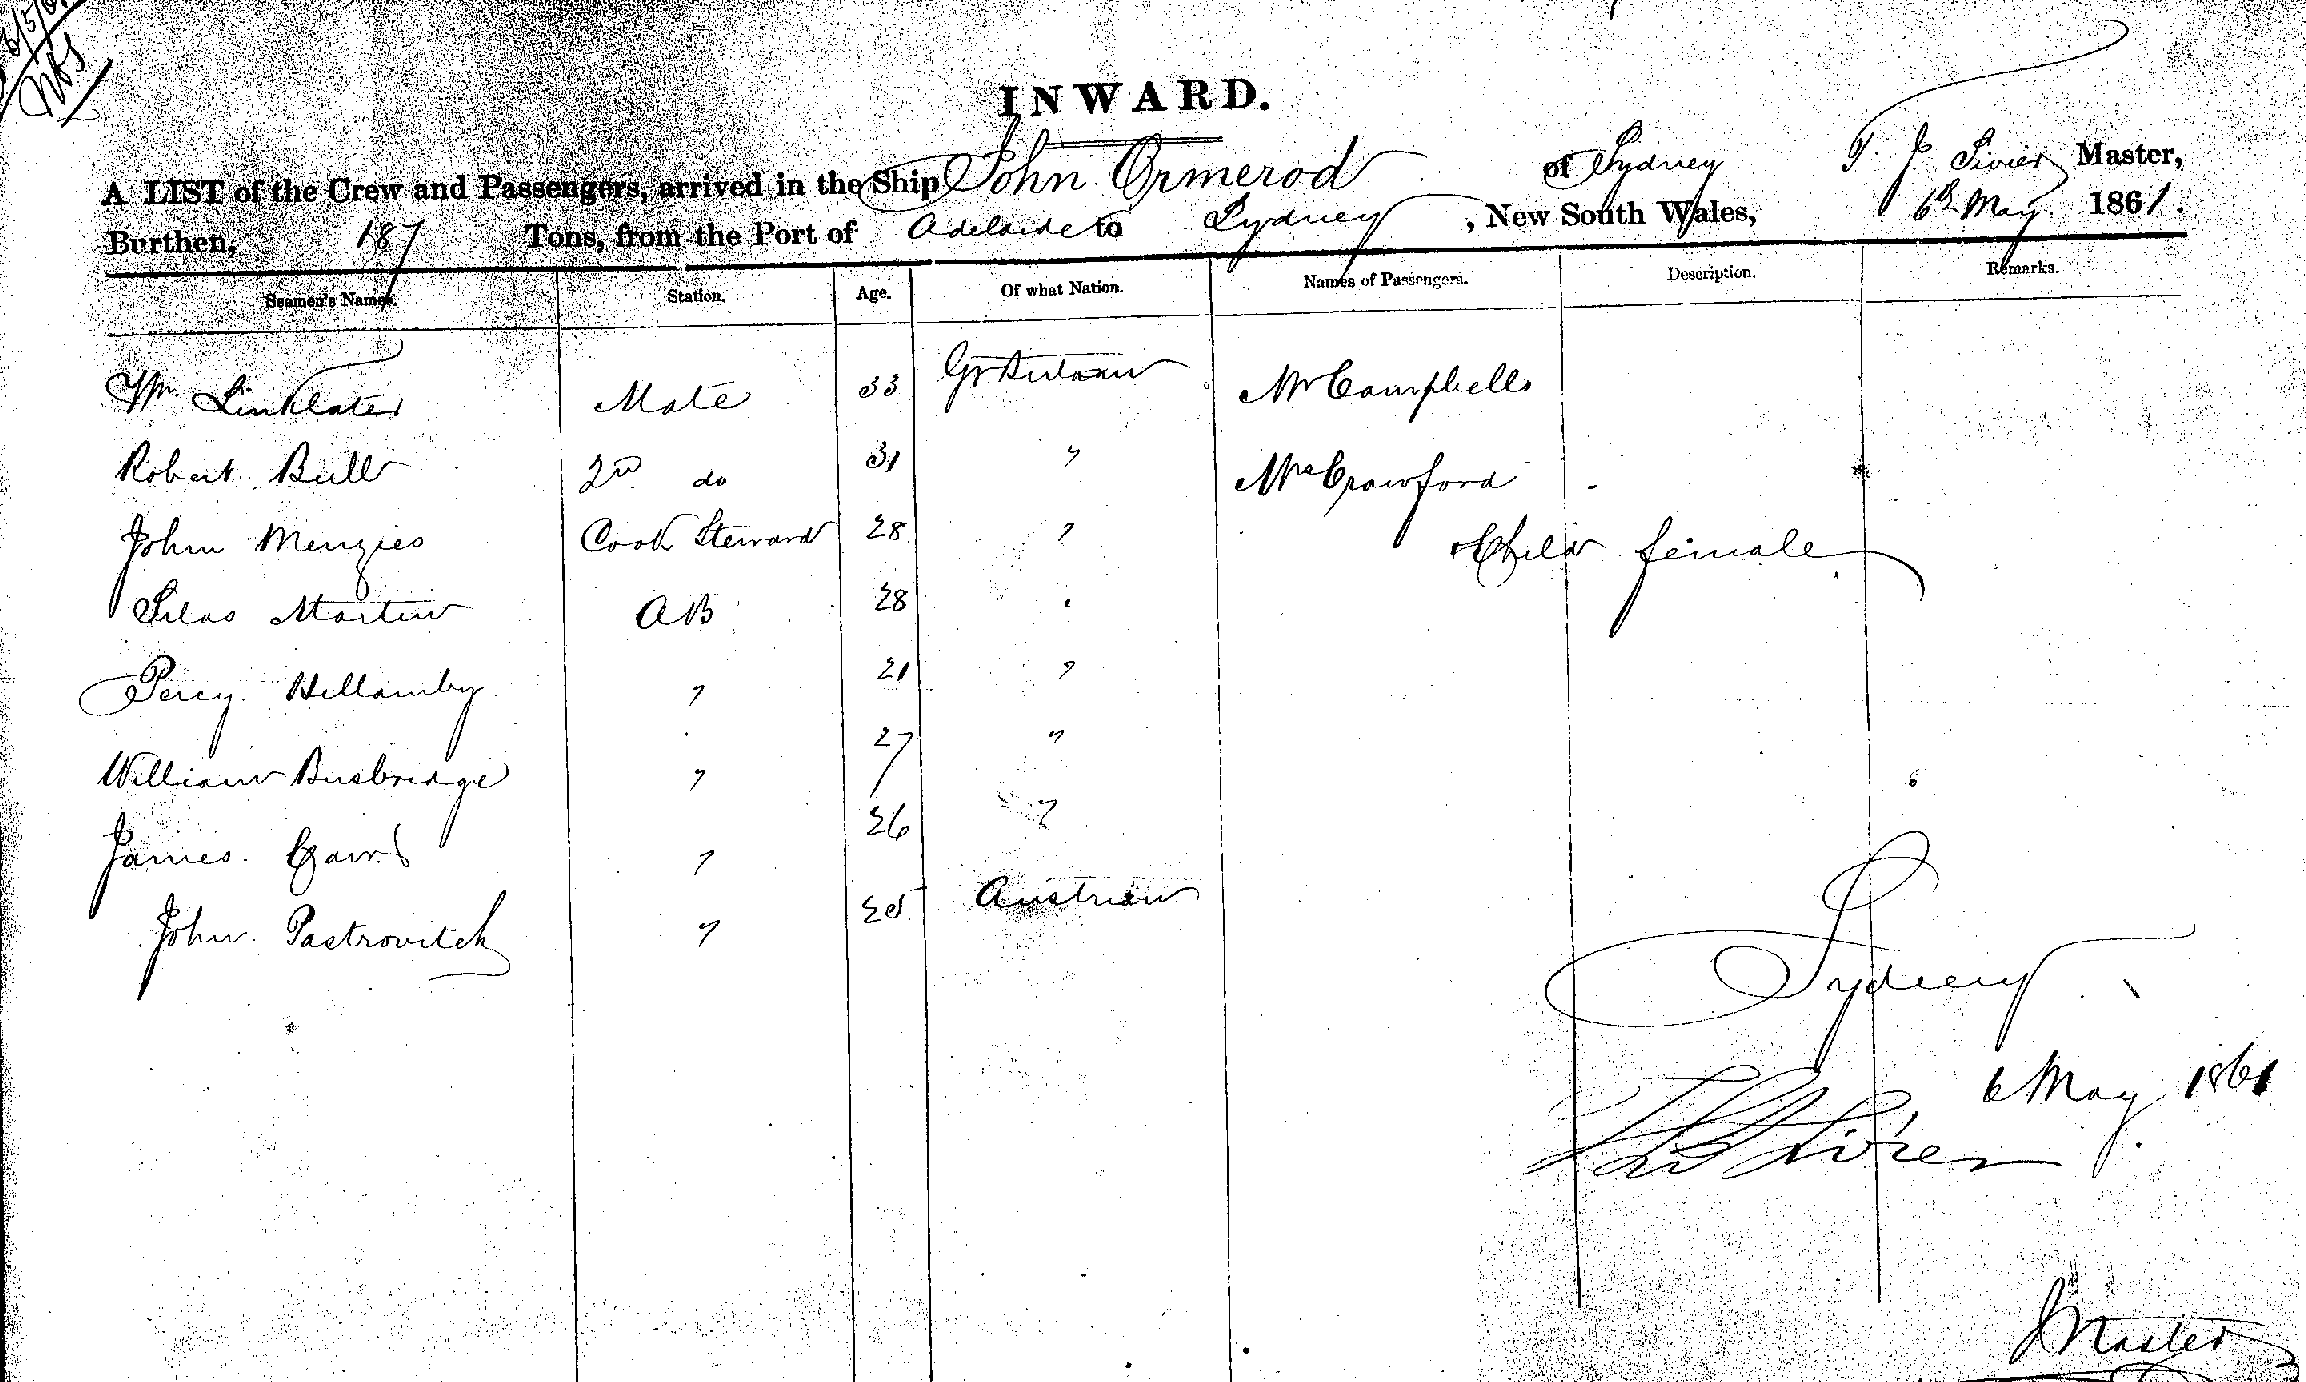 INWARD.
A LIST of the Crew and Passengers, arrived in the Ship John Ormerod of Sydney T. J. Sivier Master,
Burthen, 187 Tons, from the Port of Adelaide to Sydney, New South Wales, 6th May 1861.
Seamen's Names. Station. Age. Of what Nation. Names of Passengers. Description. Remarks.
Wm Linklater Mate 33 Gt Britain Mr Campbell
Robert Bull 2nd do 31 " Mrs Crawford
John Menzies Cook Steward 28 " & Child female
Silas Martin AB 28 "
Percy Hillamby " 21 "
William Busbridge " 27 "
James " 26 "
John Pastrovitch " 25 Austrian
Sydney
6 May 1861
Sivier
Master